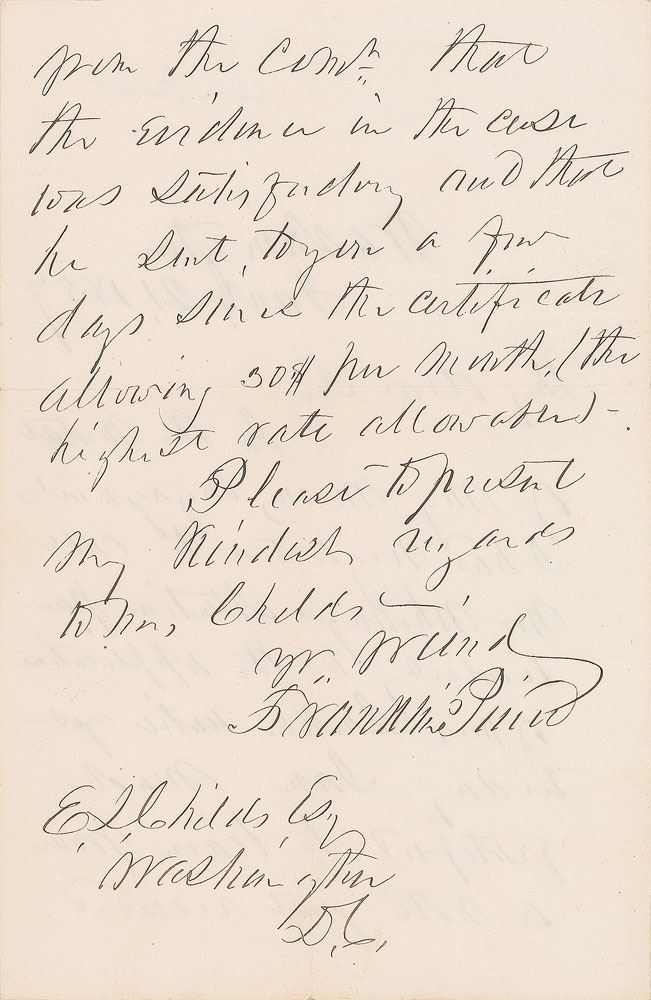 from the Comr. that
the evidence in the case
was satisfactory and that
he sent, to you a few
days since the certificate
allowing 30$ per month, (the
highest rate allowable) -
Please to present
my kindest regards
to Mrs, Childs -
Yr. friend
Franklin Pierce
E. S. Childs, Esq
Washington
D. C.